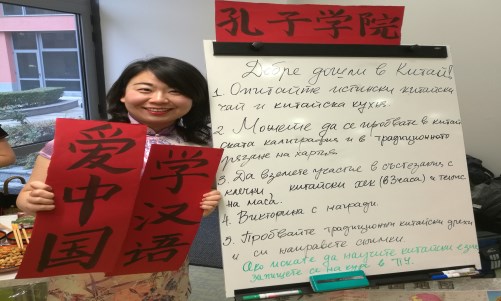 孔子学院
爱中国
学汉语
Добре дошли в Китай!
1. Опитайте истински китайски
чай и китайска кухня.
2. Можете да се пробвате в китай-
ската калиграфия и в традиционното
рязане на хартия.
3. Да вземете участие в състезания с
клечки, китайски хек (в 3 часа) и тенис
на маса.
4. Викторина с награди.
5. Пробвайте традиционни китайски дрехи
и си направете снимки.
Ако искате да научите китайски език
запишете се на курс в ПУ.